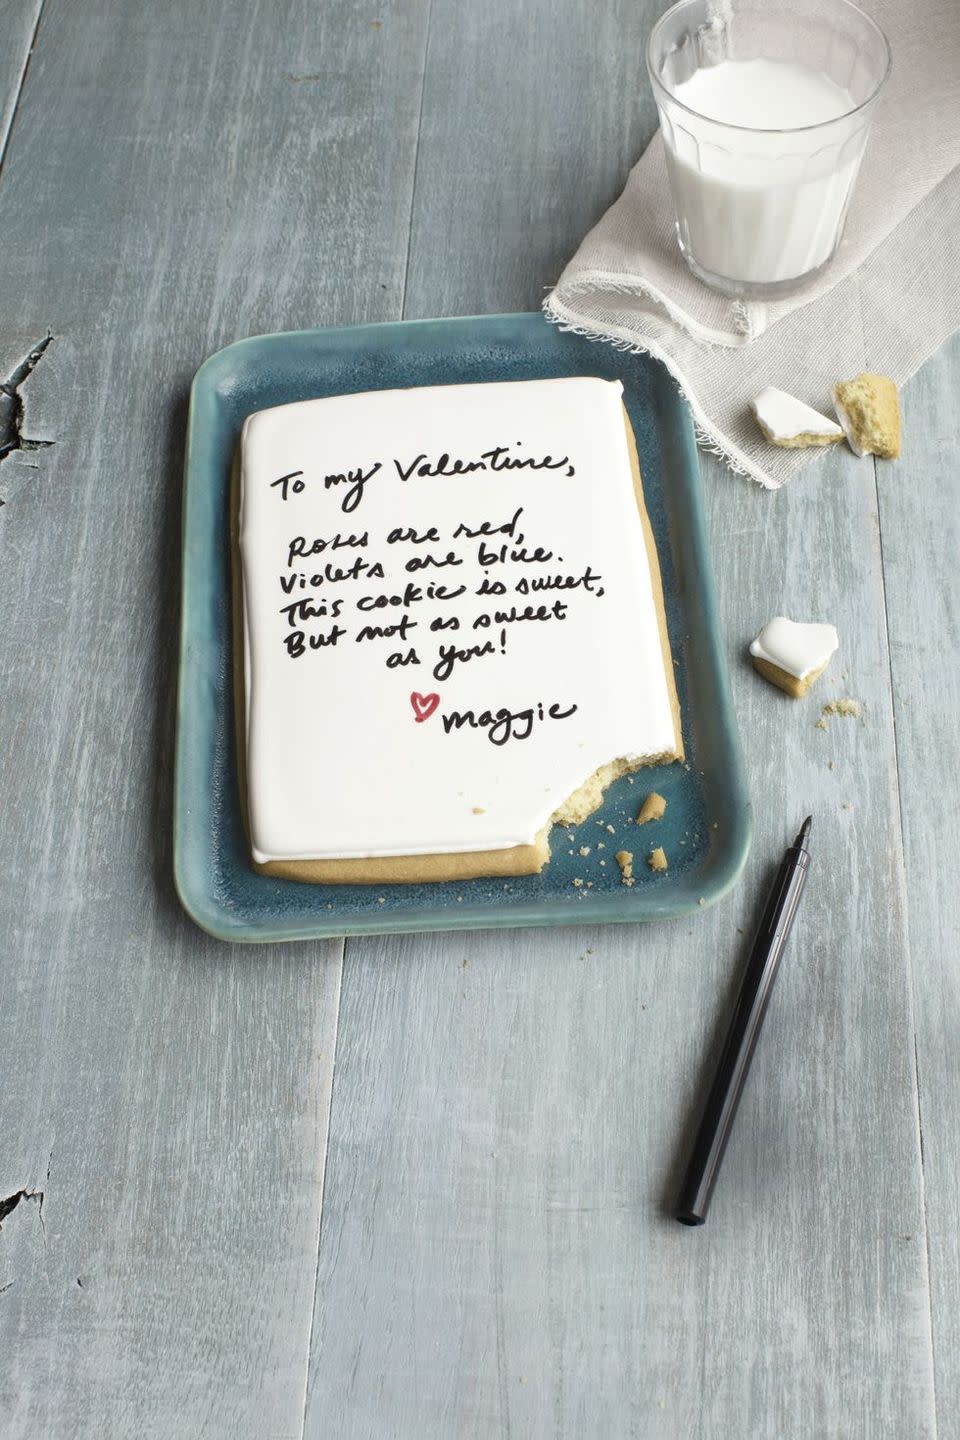 To my Valentine,
Roses are red,
Violets are blue.
This cookie is sweet,
But not as sweet
as you!
maggie